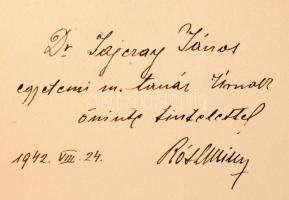 Dr Tajcray János
egyetemi m. tanár Úrnak
őszinte tisztelettel
1942. VIII. 24.